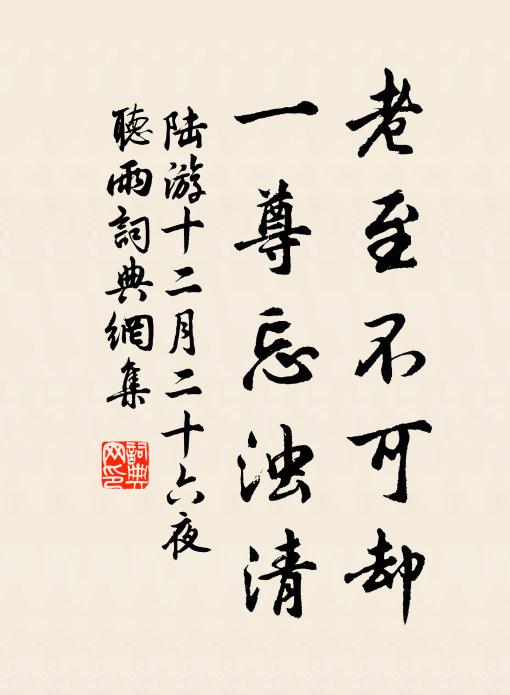 老至不可却
一尊忘浊清
陆游十二月二十六夜
聽雨詞典網集
詞典网印